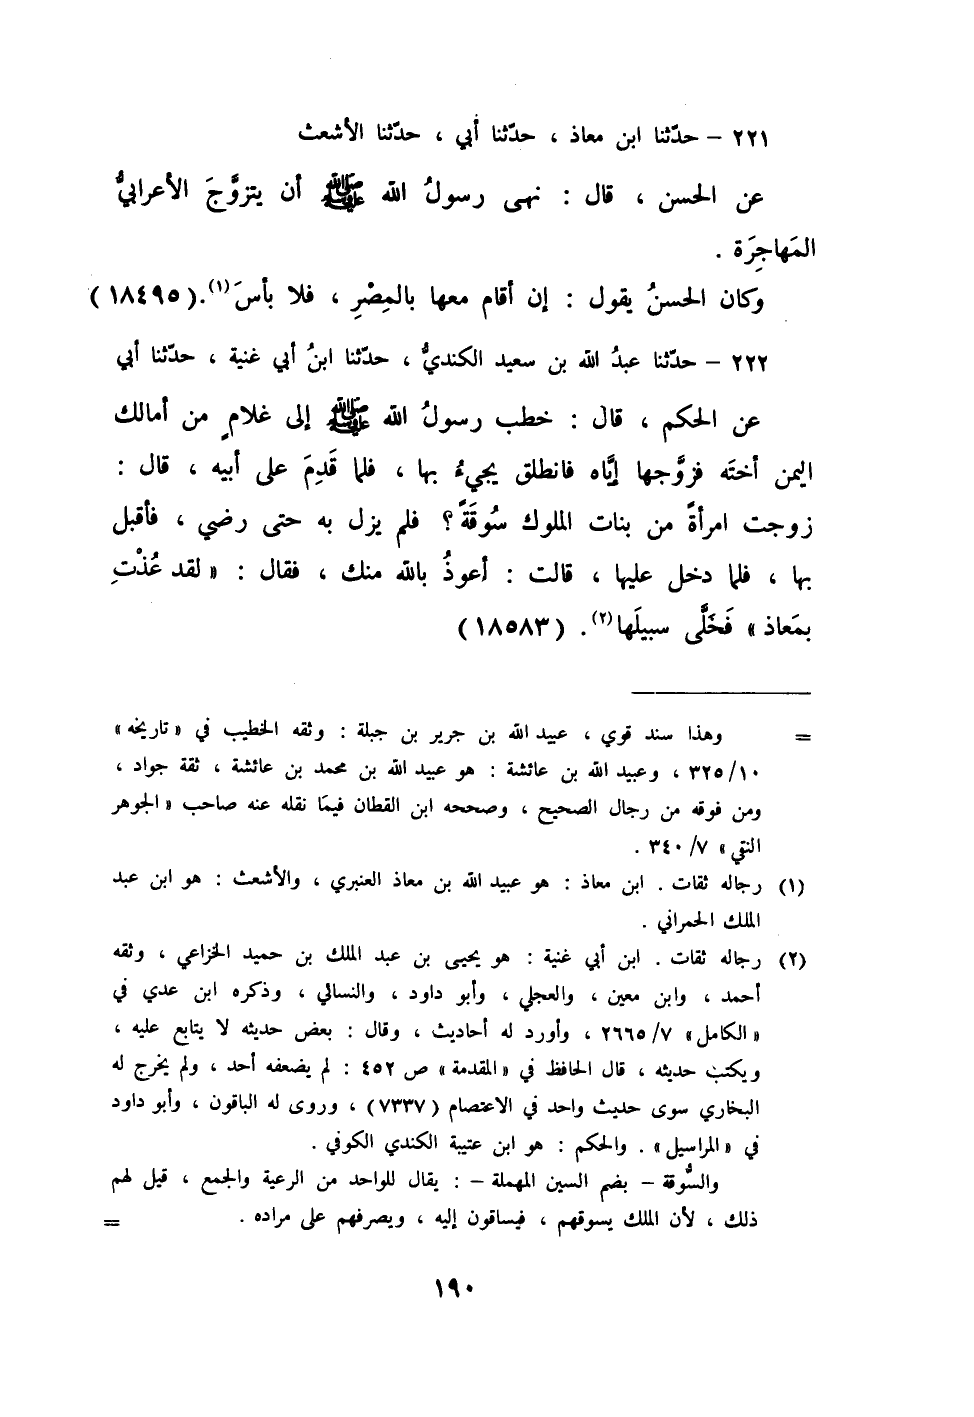 ٢٢١ – حدّثنا ابن معاذ ، حدّثنا أبي ، حدّثنا الأشعث
عن الحسن ، قال : نهى رسولُ الله ﷺ أن يتزوَّجَ الأعرابيُّ
المَهاجِرَة .
وكان الحسنُ يقول : إن أقام معها بالمِصْرِ ، فلا بأسَ(١).(١٨٤٩٥)
٢٢٢ – حدّثنا عبدُ الله بن سعيد الكنديُّ ، حدّثنا ابنُ أبي غنية ، حدّثنا أبي
عن الحكم ، قال : خطب رسولُ الله ﷺ إلى غلامٍ من أمالك
اليمن أختَه فزوَّجها إيَّاه فانطلق يجيءُ بها ، فلما قَدِمَ على أبيه ، قال :
زوجت امرأةً من بنات الملوك سُوقَةً؟ فلم يزل به حتى رضي ، فأقبل
بها ، فلما دخل عليها ، قالت : أعوذُ بالله منك ، فقال : « لقد عُذْتِ
بمَعاذ » فَخَلَّى سبيلَها(٢). (١٨٥٨٣)
= وهذا سند قوي ، عبيد الله بن جرير بن جبلة : وثقه الخطيب في « تاريخه »
١٠/ ٣٢٥ ، وعبيد الله بن عائشة : هو عبيد الله بن محمد بن عائشة ، ثقة جواد ،
ومن فوقه من رجال الصحيح ، وصححه ابن القطان فيما نقله عنه صاحب « الجوهر
النقي » ٧/ ٣٤٠ .
(١) رجاله ثقات . ابن معاذ : هو عبيد الله بن معاذ العنبري ، والأشعث : هو ابن عبد
الملك الحمراني .
(٢) رجاله ثقات . ابن أبي غنية : هو يحيى بن عبد الملك بن حميد الخزاعي ، وثقه
أحمد ، وابن معين ، والعجلي ، وأبو داود ، والنسائي ، وذكره ابن عدي في
« الكامل » ٧/ ٢٦٦٥ ، وأورد له أحاديث ، وقال : بعض حديثه لا يتابع عليه ،
ويكتب حديثه ، قال الحافظ في « المقدمة » ص ٤٥٢ : لم يضعفه أحد ، ولم يخرج له
البخاري سوى حديث واحد في الاعتصام (٧٣٣٧) ، وروى له الباقون ، وأبو داود
في « المراسيل » . والحكم : هو ابن عتيبة الكندي الكوفي .
والسُّوقة – بضم السين المهملة – : يقال للواحد من الرعية والجمع ، قيل لهم
ذلك ، لأن الملك يسوقهم ، فيساقون إليه ، ويصرفهم على مراده . =
١٩٠